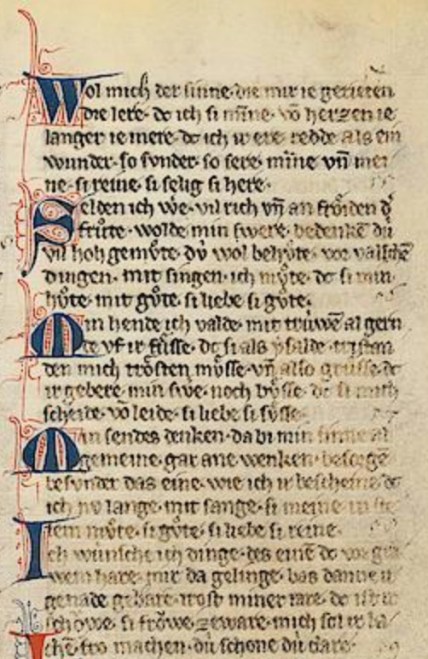 Wol mich der sinne· die mir ie gerieten
die lere· dc ich si mīne· vō herzen ie
langer ie mere· dc ich ir ere· rehte als ein
wunder· so svnder· so sere· mīne vn̄ mei
ne· si reine· si selig si here·
Selden ich wͤe· vil rich vn̄ an froͤiden dˢ
frůte· wolde min swere· bedenkē dú
vil hoh gemůte· dú wol behůte· vor valschē
dingen· mit singen· ich můte· dc si min
hůte· mit gůte· si liebe si gůte·
Min hende ich valde· mit trúwē al gern
de vf ir fůsse· dc si als ysalde· tristan
den mich troͤsten můsse· vn̄ also grůsse· dc
ir gebere· min swͤe· noch bůsse· dc si mich
scheide· vō leide· si liebe si sůsse·
Min sendes denken· da bi min sinne al
gemeine· gar ane wenken· besorgē
besvnder das eine· wie ich ir bescheine· dc
ich nv lange· mit sange· si meine· in ste
tem můte· si gůte· si liebe si reine·
Ich wúnsche ich dinge· des eine dc vor
wem hare· mir da gelinge· bas danne
genade gebare· trost miner iare· dc
schowe· si froͤwe· zeware· mich sol ir la
chē fro machen· dú schone dú clare·